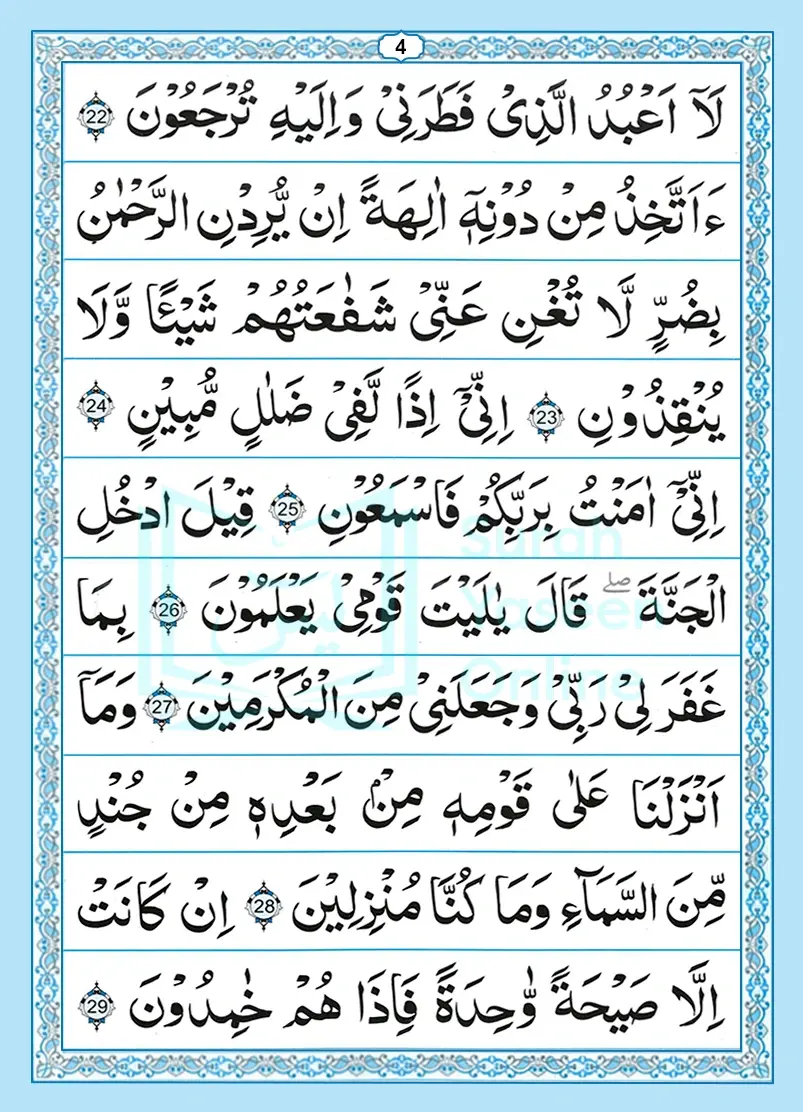 4
لَآ اَعْبُدُ الَّذِیْ فَطَرَنِیْ وَاِلَیْهِ تُرْجَعُوْنَ 22
ءَاَتَّخِذُ مِنْ دُوْنِهٖۤ اٰلِهَةً اِنْ یُّرِدْنِ الرَّحْمٰنُ
بِضُرٍّ لَّا تُغْنِ عَنِّیْ شَفٰعَتُهُمْ شَیْئًا وَّلَا
یُنْقِذُوْنِ 23 اِنِّیْۤ اِذًا لَّفِیْ ضَلٰلٍ مُّبِیْنٍ 24
اِنِّیْۤ اٰمَنْتُ بِرَبِّكُمْ فَاسْمَعُوْنِ 25 قِیْلَ ادْخُلِ
الْجَنَّةَ ۖ قَالَ یٰلَیْتَ قَوْمِیْ یَعْلَمُوْنَ 26 بِمَا
غَفَرَ لِیْ رَبِّیْ وَجَعَلَنِیْ مِنَ الْمُكْرَمِیْنَ 27 وَمَآ
اَنْزَلْنَا عَلٰی قَوْمِهٖ مِنْۢ بَعْدِهٖ مِنْ جُنْدٍ
مِّنَ السَّمَآءِ وَمَا كُنَّا مُنْزِلِیْنَ 28 اِنْ كَانَتْ
اِلَّا صَیْحَةً وَّاحِدَةً فَاِذَا هُمْ خٰمِدُوْنَ 29
Surah
Yaseen
Online